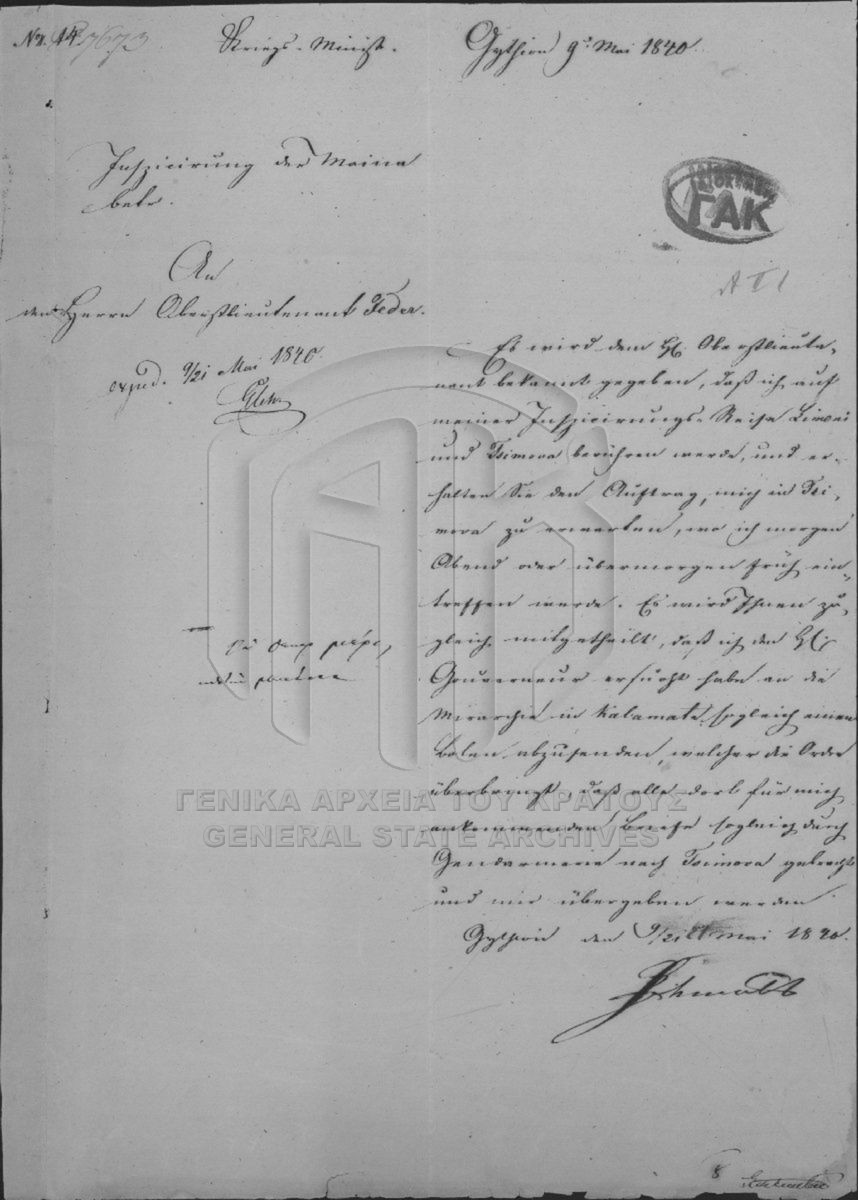 No. 14. 7673
Kriegs-Minist.
Gythion 9. Mai 1840
Inspicirung der Maina
betr.
An
den Herrn Oberstlieutenant Feder.
exped. 9/21 Mai 1840.
ΓΑΚ
Es wird dem H. Oberstlieute-
nant bekannt gegeben, daß ich auf
meiner Inspicirungs-Reise Limeni
und Tsimova berühren werde, und er-
halten Sie den Auftrag, mich in Tsi-
mova zu erwarten, wo ich morgen
Abend oder übermorgen früh ein-
treffen werde. Es wird Ihnen zu-
gleich mitgetheilt, daß ich den H.
Gouverneur ersucht habe an die
Mirarchie in Kalamata sogleich einen
Boten abzusenden, welcher die Ordre
überbringt, daß alle dort für mich
ankommenden Briefe sogleich durch
Gendarmerie nach Tsimova gebracht
und mir übergeben werden.
Gythion den 9/21 Mai 1840.
Schmaltz
ΓΕΝΙΚΑ ΑΡΧΕΙΑ ΤΟΥ ΚΡΑΤΟΥΣ
GENERAL STATE ARCHIVES
8